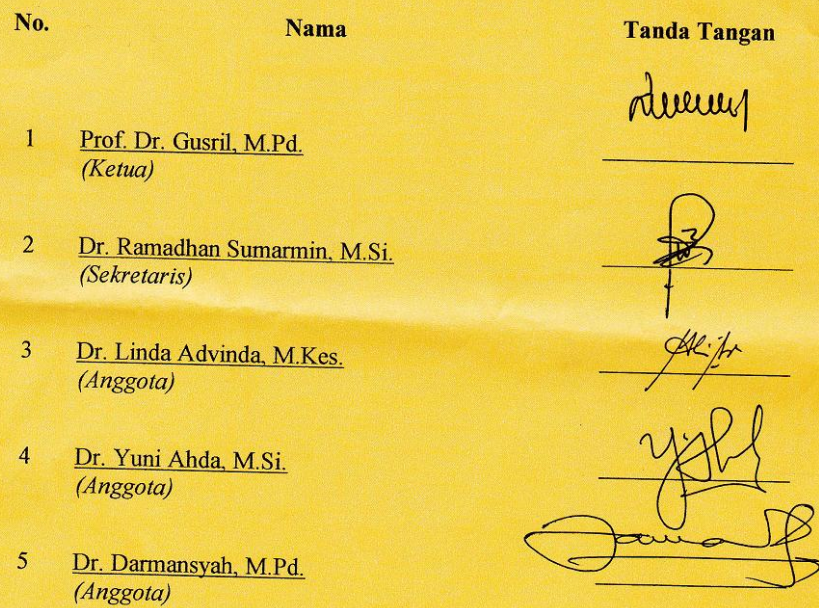 No. Nama Tanda Tangan
1 Prof. Dr. Gusril, M.Pd.
(Ketua)
2 Dr. Ramadhan Sumarmin, M.Si.
(Sekretaris)
3 Dr. Linda Advinda, M.Kes.
(Anggota)
4 Dr. Yuni Ahda, M.Si.
(Anggota)
5 Dr. Darmansyah, M.Pd.
(Anggota)